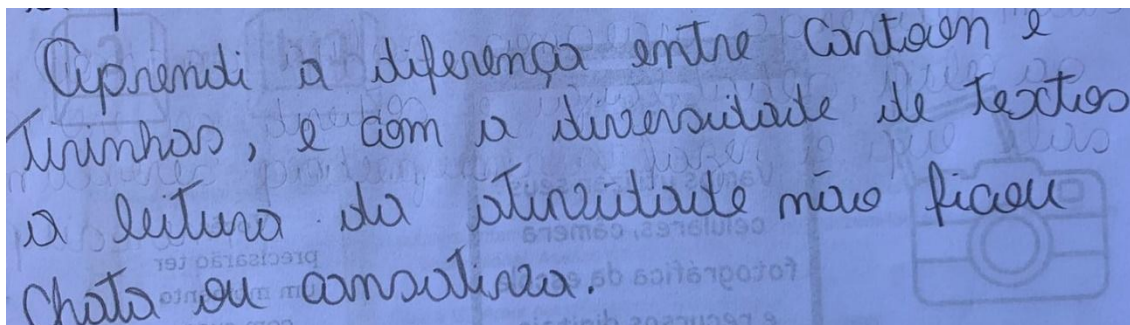 Aprendi a diferença entre Cartoon e
Tirinhas, e com a diversidade de textos
a leitura da atividade não ficou
chata ou cansativa.